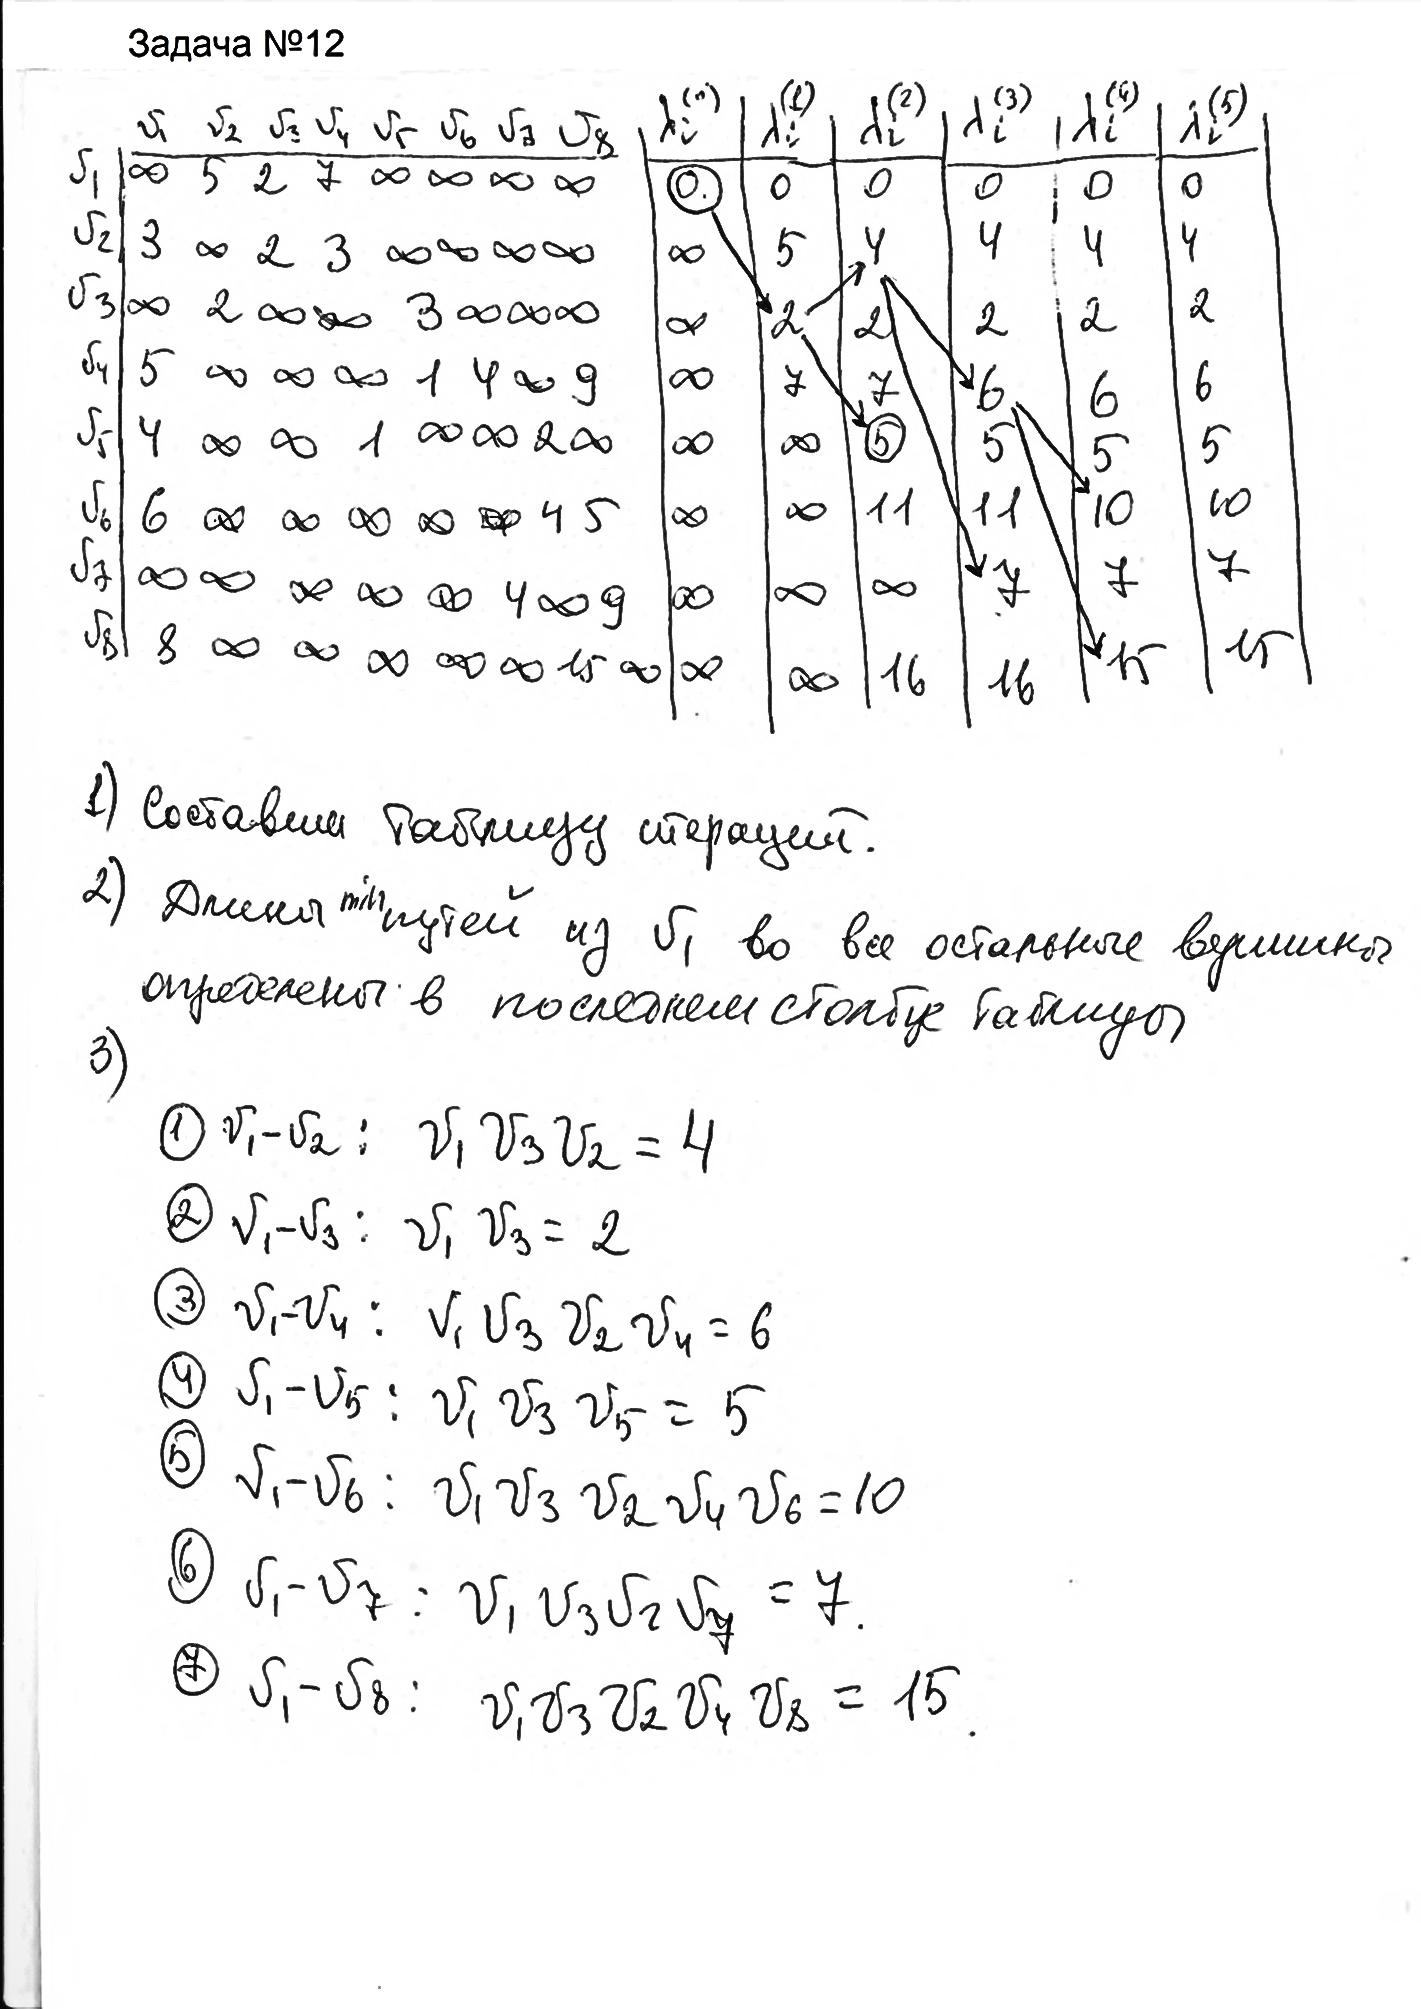 Задача №12
v1 v2 v3 v4 v5 v6 v7 v8 λi(0) λi(1) λi(2) λi(3) λi(4) λi(5)
v1 ∞ 5 2 7 ∞ ∞ ∞ ∞ 0 0 0 0 0 0
v2 3 ∞ 2 3 ∞ ∞ ∞ ∞ ∞ 5 4 4 4 4
v3 ∞ 2 ∞ ∞ 3 ∞ ∞ ∞ ∞ 2 2 2 2 2
v4 5 ∞ ∞ ∞ 1 4 ∞ 9 ∞ 7 7 6 6 6
v5 4 ∞ ∞ 1 ∞ ∞ 2 ∞ ∞ ∞ 5 5 5 5
v6 6 ∞ ∞ ∞ ∞ ∞ 4 5 ∞ ∞ 11 11 10 10
v7 ∞ ∞ ∞ ∞ ∞ 4 ∞ 9 ∞ ∞ ∞ 7 7 7
v8 8 ∞ ∞ ∞ ∞ ∞ 15 ∞ ∞ ∞ 16 16 15 15
1) Составим таблицу итераций.
2) Длины min путей из v1 во все остальные вершины
определены в последнем столбце таблицы
3)
① v1-v2 : v1 v3 v2 = 4
② v1-v3 : v1 v3 = 2
③ v1-v4 : v1 v3 v2 v4 = 6
④ v1-v5 : v1 v3 v5 = 5
⑤ v1-v6 : v1 v3 v2 v4 v6 = 10
⑥ v1-v7 : v1 v3 v2 v7 = 7.
⑦ v1-v8 : v1 v3 v2 v4 v8 = 15.